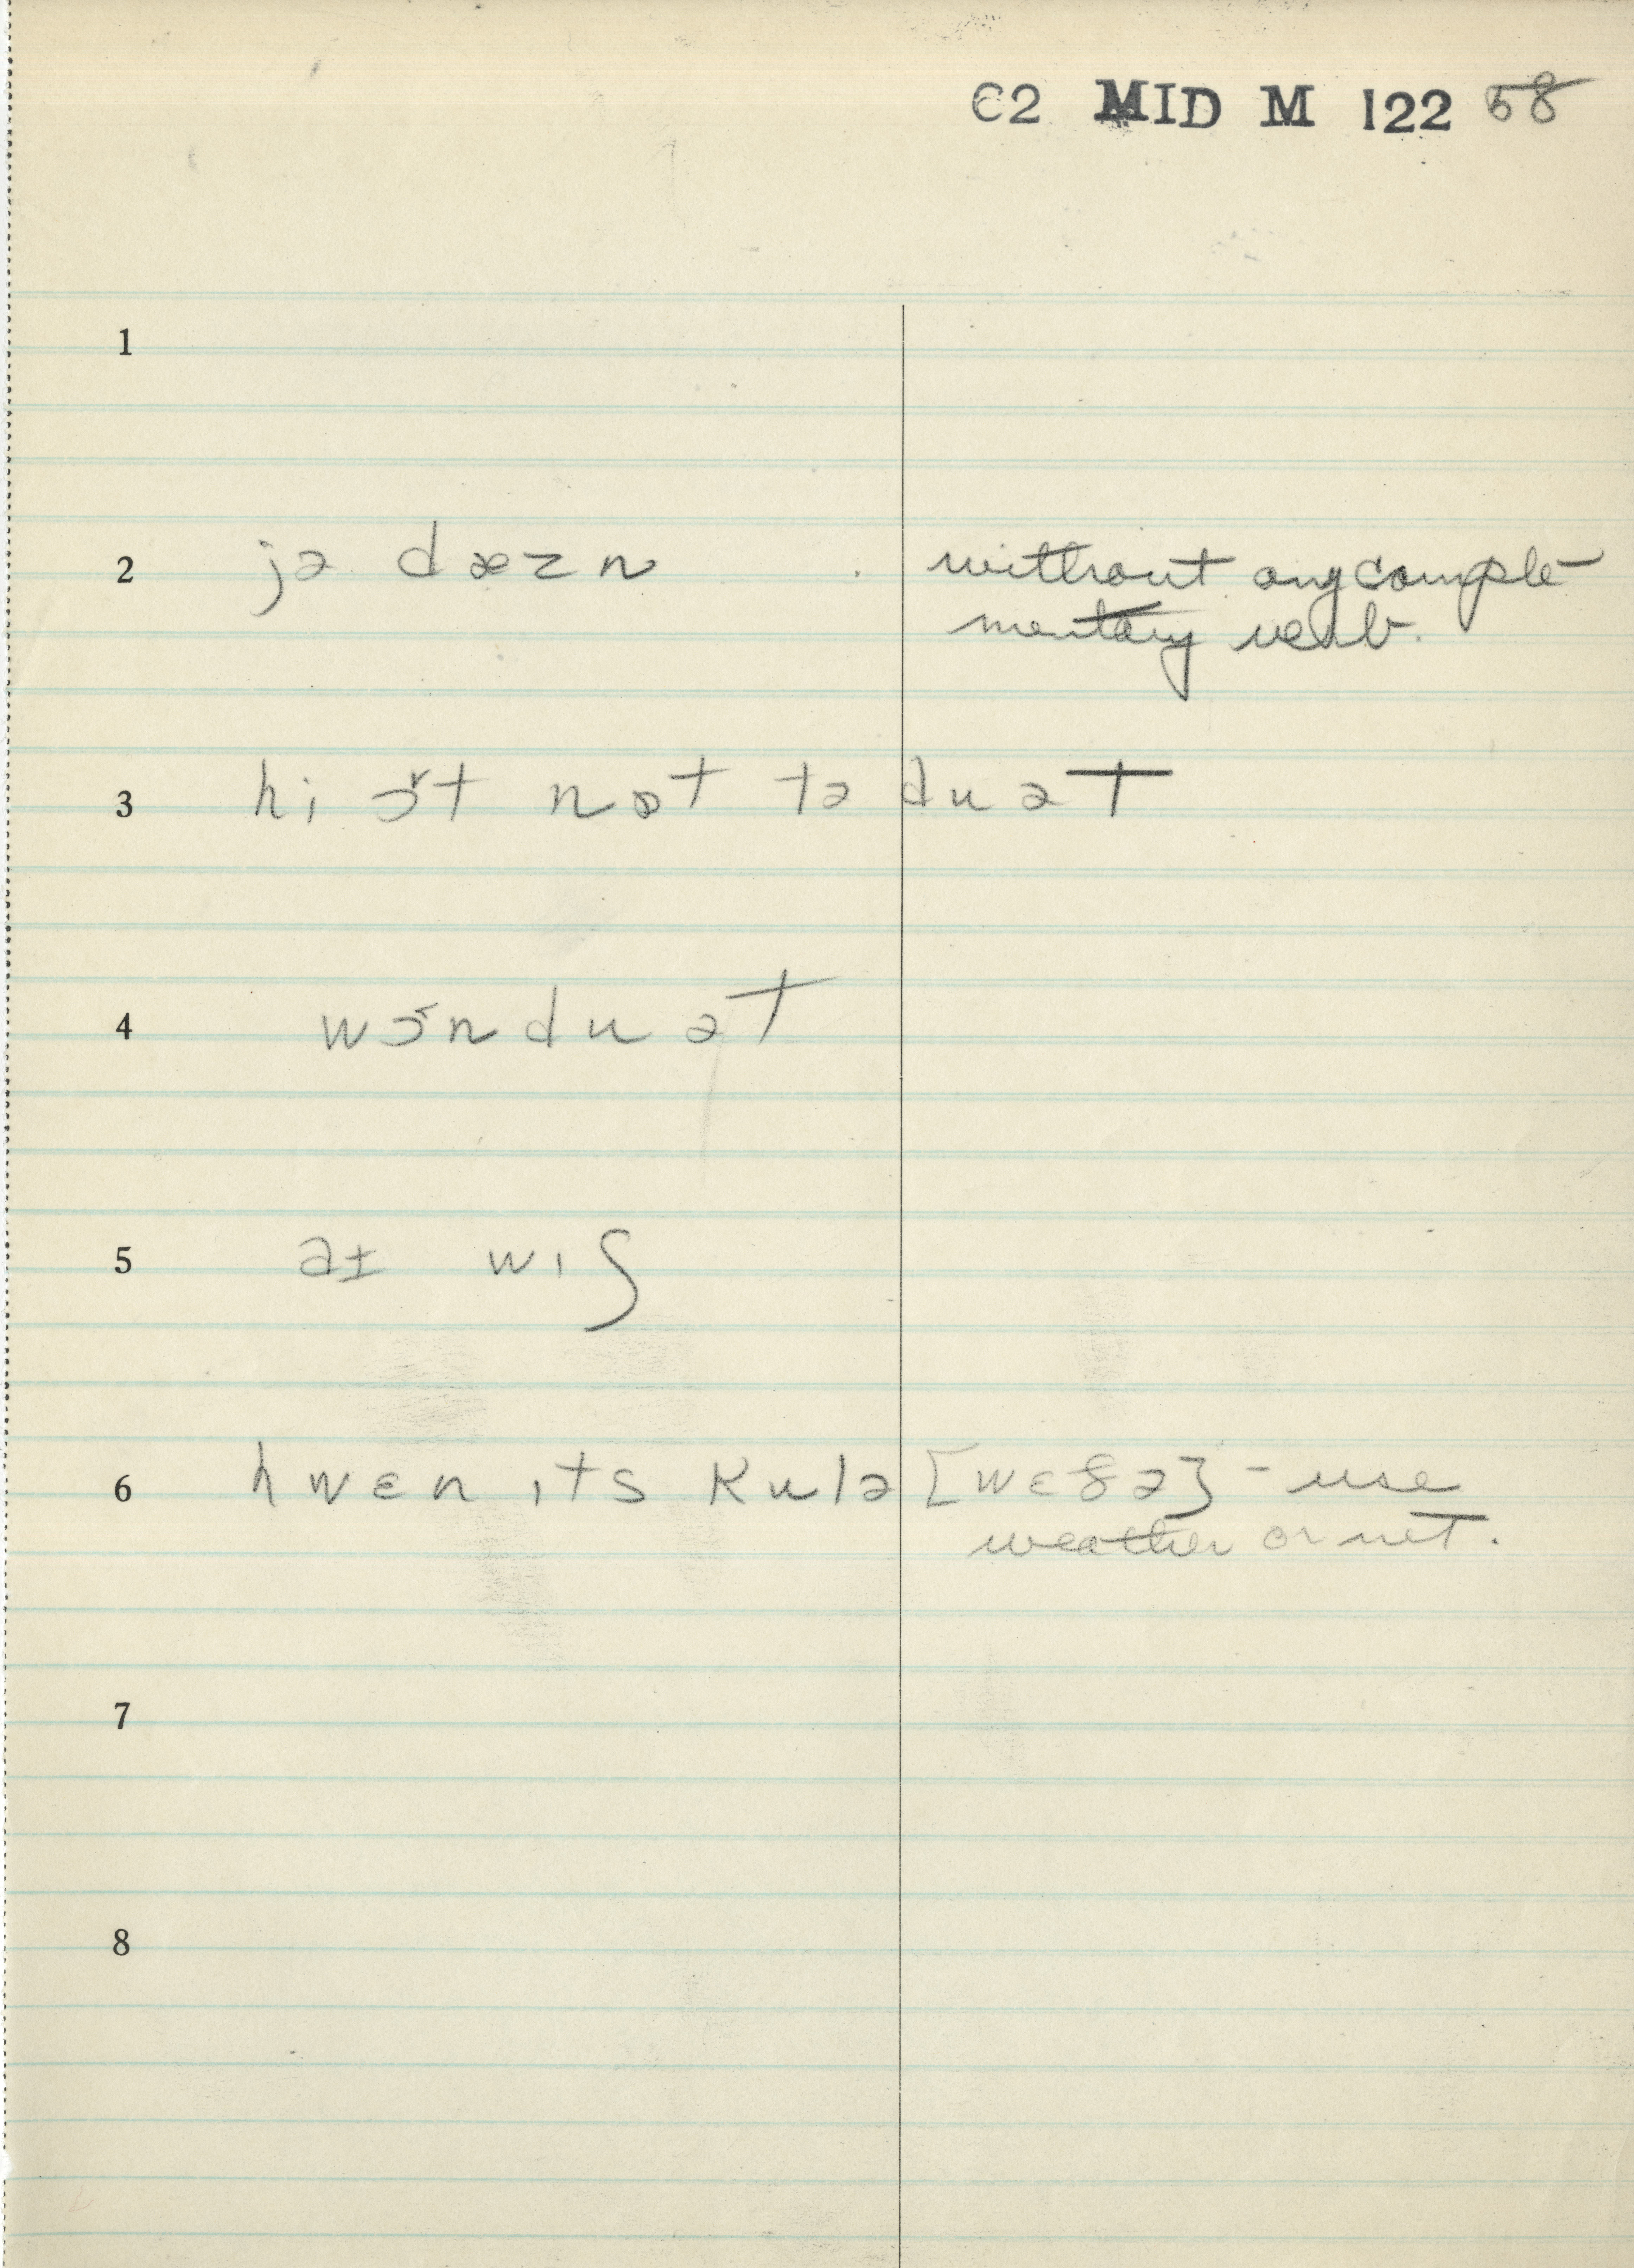 C2 MID M 122 58
1
2 jə dæzn without any comple-
mentary verb.
3 hi ɔ̌t nɒt tə du ət
4 wɔ̌n du ət
5 aɪ wɪʃ
6 hwɛn ɪts kulə [wɛðə] - use
weather or not.
7
8